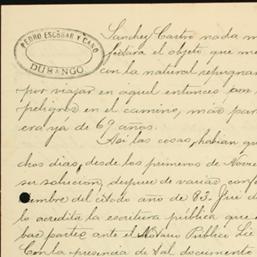 PEDRO ESCOBAR Y CANO
DURANGO
Sanchez Castro nada m
festara el objeto que me
con la natural repugnan
por viajar en aquel entonces con
peligros en el camino, más par
era ya de 69 años.
Así las cosas, habían qu
chos días, desde los primeros de Novie
su solución, despues de varias conf
embre del citado año de 83. Que d
lo acredita la escritura pública que
bas partes ante el Notario Público Lic
Con la presencia de tal documento